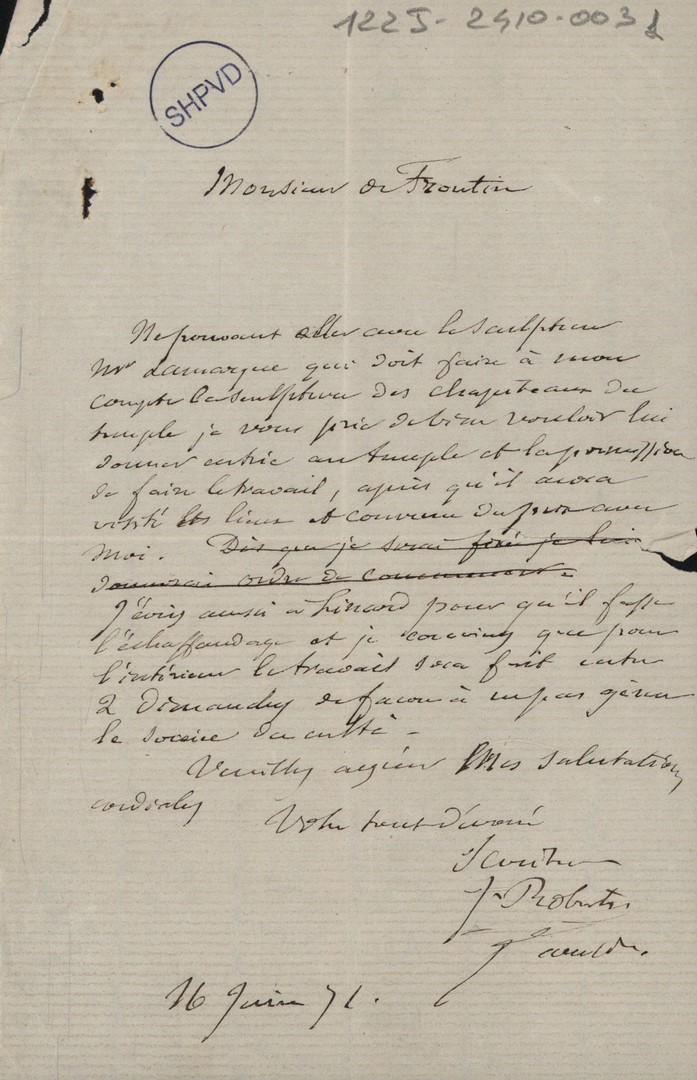 122J-2410-003
SHPVD
Monsieur de Froutin
Ne pouvant aller avec le sculpteur
Mr Lamarque qui doit faire à mon
compte la sculpture des chapiteaux du
temple je vous prie de bien vouloir lui
donner entrée au temple et la permission
de faire le travail, après qu'il aura
visité les lieux et convenu du prix avec
moi. Dès que je serai fixé je lui
donnerai ordre de commencer.
J'écris aussi à Linard pour qu'il fasse
l'échaffaudage et je conviens que pour
l'intérieur le travail sera fait entre
2 Dimanches de façon à ne pas gèner
le service du culte -
Veuillez agréer Mes salutations
cordiales
Votre tout dévoué
Serviteur
J. Roberts
16 Juin 71.